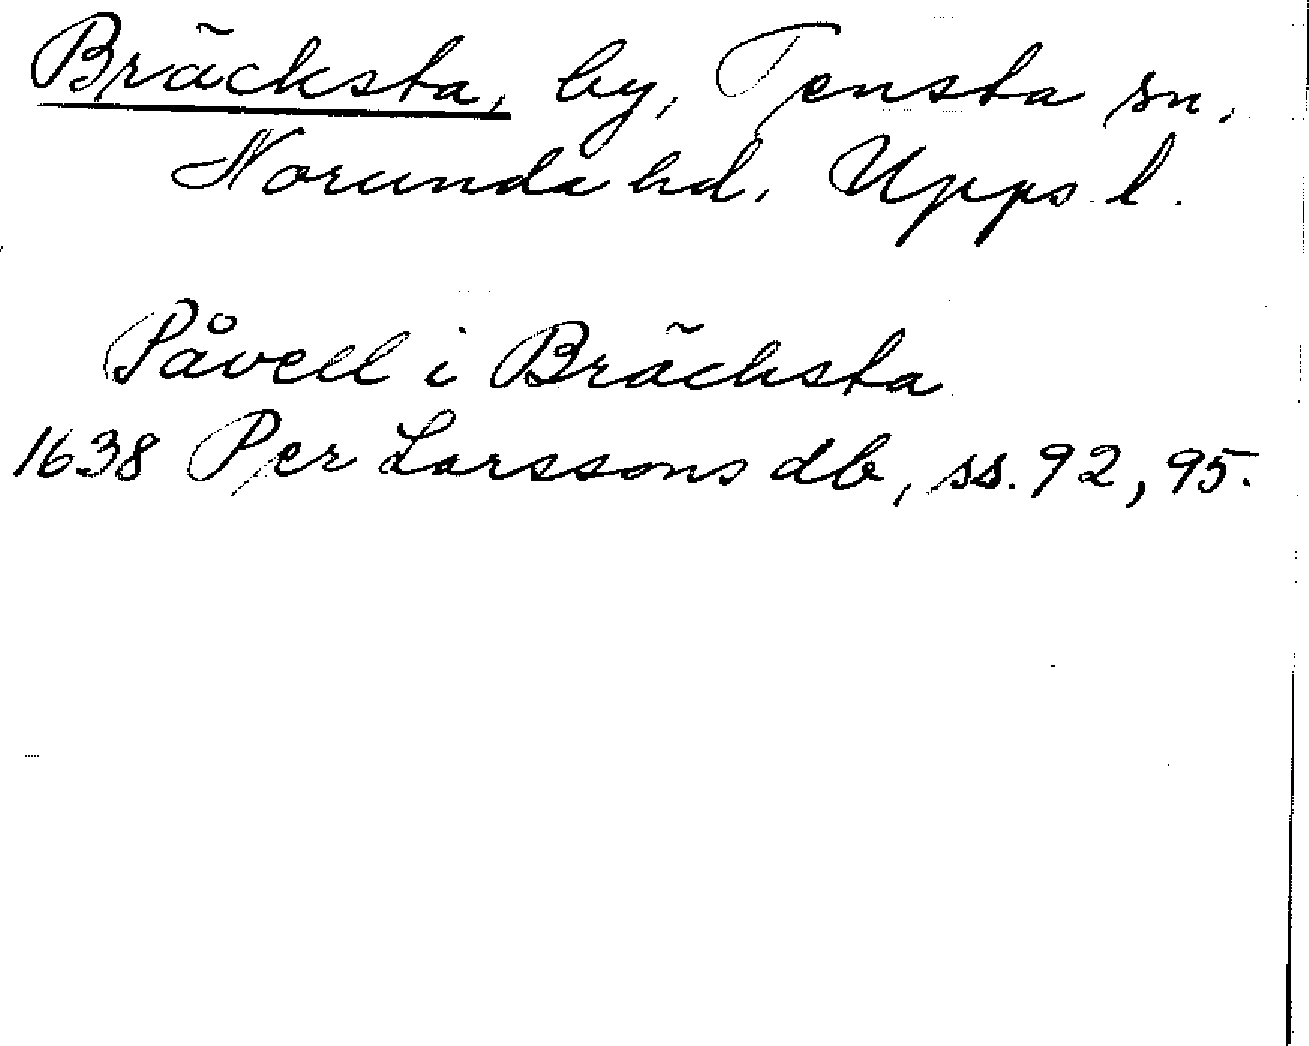 Bräcksta, by, Tensta sn.
Norunda hd. Upps. l.
Påvell i Bräcksta
1638 Per Larssons db, ss. 92, 95.